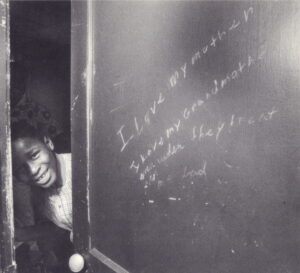 I love my mother
I love my Grandmother
they treat
me bad